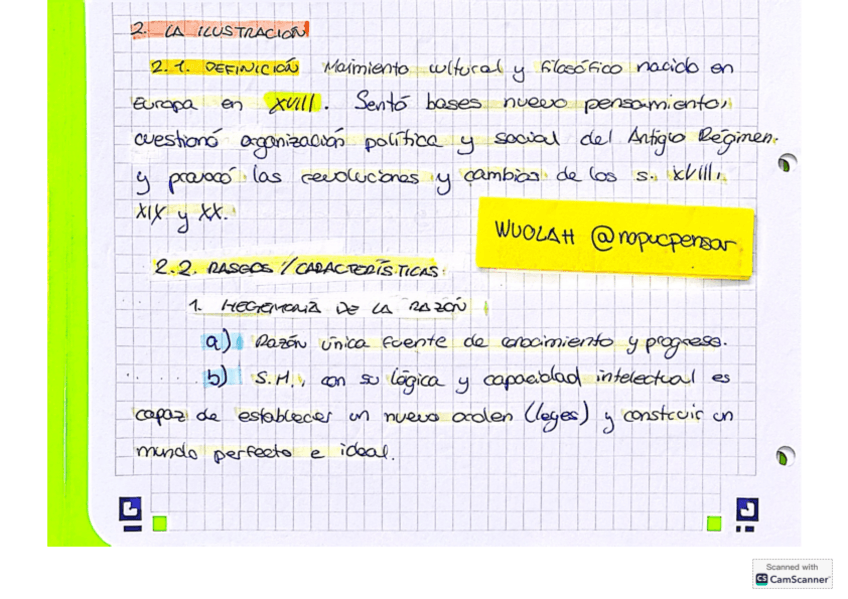 2. LA ILUSTRACIÓN
2.1. DEFINICIÓN Movimiento cultural y filosófico nacido en
Europa en XVIII. Sentó bases nuevo pensamiento,
cuestionó organización política y social del Antiguo Régimen.
y provocó las revoluciones y cambios de los s. XVIII,
XIX y XX.
WUOLAH @nopucpensar
2.2. RASGOS / CARACTERÍSTICAS.
1. HEGEMONÍA DE LA RAZÓN
a) Razón única fuente de conocimiento y progreso.
b) S.H., con su lógica y capacidad intelectual es
capaz de establecer un nuevo orden (leyes) y construir un
mundo perfecto e ideal.
Scanned with
CS CamScanner